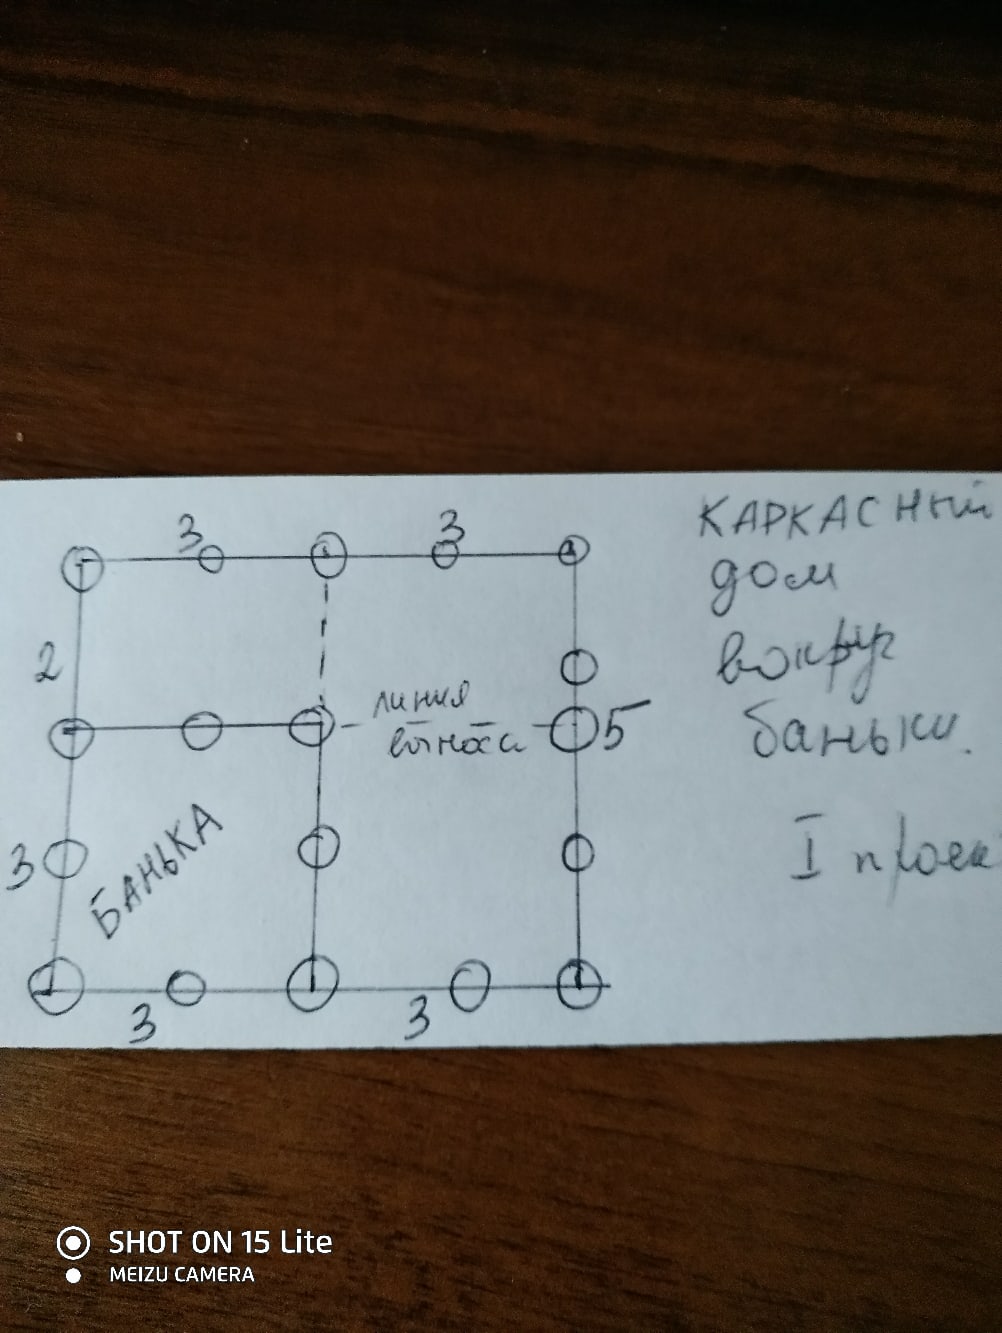 3 3
КАРКАСНЫЙ
дом
вокруг
баньки.
I проек
2
линия
выноса
5
3
БАНЬКА
3 3
SHOT ON 15 Lite
MEIZU CAMERA